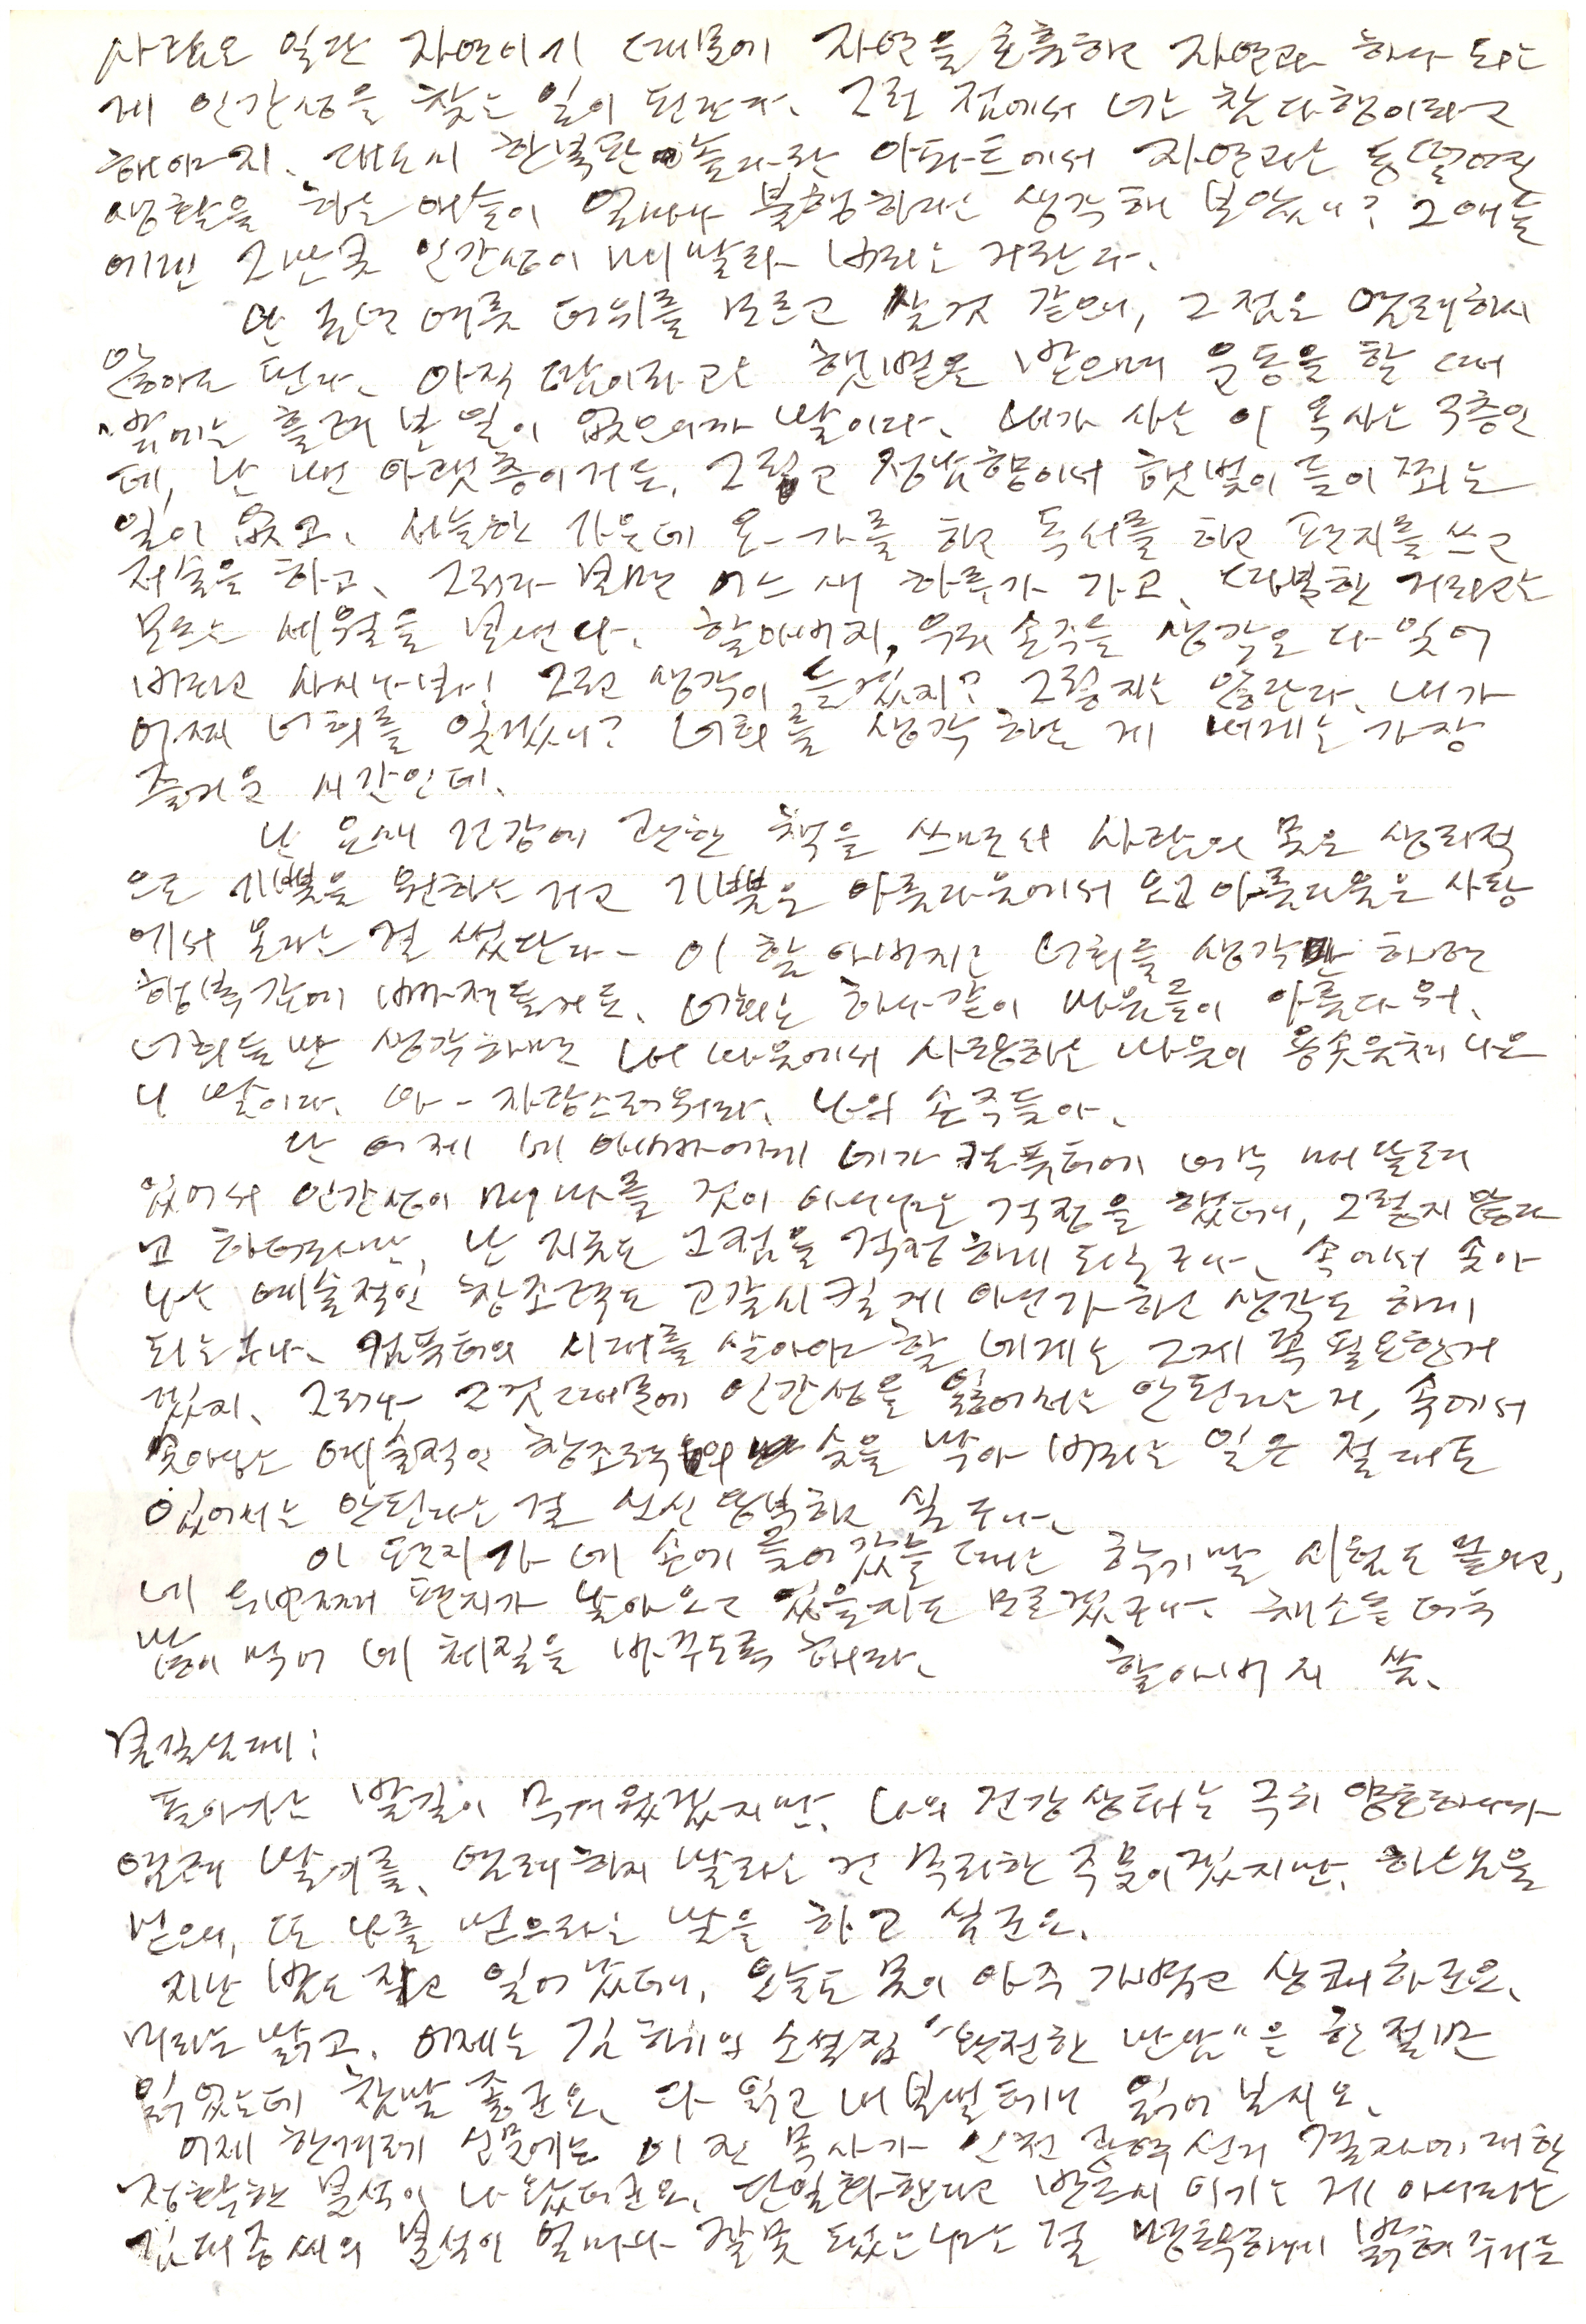 사람은 일단 자연이기 때문에 자연을 호흡하고 자연과 하나 되는
게 인간성을 찾는 일이 된단다. 그런 점에서 너는 참 다행이라고
해야지. 대도시 한복판 아파트에서 자연과는 동떨어진
생활을 하는 애들이 얼마나 불행하냐는 생각해 보았니? 그애들
에겐 그만큼 인간성이 메말라 버리는 거란다.
난 올해 여름 더위를 모르고 살 것 같으니, 그 점은 염려하지
않아도 된다. 아직 땀이라고는 햇볕을 받으며 운동을 할 때
밖에는 흘려 본 일이 없으니까 말이다. 내가 사는 이 옥사는 3층인
데, 난 맨 아랫층이거든. 그리고 정남향이어서 햇빛이 들이쬐는
일이 없고. 서늘한 가운데 요가를 하고 독서를 하고 편지를 쓰고
저술을 하고, 그러다 보면 어느 새 하루가 가고, 따분한 거라고는
모르는 세월을 보낸다. 할아버지, 우리 손주들 생각은 다 잊어
버리고 사시나봐! 그런 생각이 들겠지? 그렇지는 않단다. 내가
어찌 너희를 잊겠니? 너희를 생각하는 게 내게는 가장
즐거운 시간인데.
난 요새 건강에 관한 책을 쓰면서 사람의 몸은 생리적
으로 기쁨을 원하는 거고 기쁨은 아름다움에서 오고 아름다움은 사랑
에서 온다는 걸 썼단다. 이 할아버지는 너희들 생각만 하면
행복감에 빠져들거든. 너희는 하나같이 마음들이 아름다워.
너희들만 생각하면 내 마음에서 사랑하는 마음이 용솟음쳐 나오
니 말이다. 아 - 자랑스러워라. 나의 손주들아.
난 어제 네 아빠에게 네가 컴퓨터에 너무 매달려
있어서 인간성이 메마를 것이 아니냐는 걱정을 했더니, 그렇지 않다
고 하더라만, 난 지금도 그 점을 걱정하게 되는구나. 속에서 솟아
나는 예술적인 창조력도 고갈시킬 게 아닌가 하는 생각도 하게
되는구나. 컴퓨터의 시대를 살아야 할 네게는 그게 꼭 필요한 거
겠지. 그러나 그것 때문에 인간성을 잃어서는 안 된다는 거, 속에서
솟아나는 예술적인 창조력의 숨을 막아 버리는 일은 절대로
있어서는 안된다는 걸 신신당부하고 싶구나.
이 편지가 네 손에 들어갔을 때는 학기말 시험도 끝나고,
네 두번째 편지가 날아오고 있을지도 모르겠구나. 채소를 더욱
많이 먹어 네 체질을 바꾸도록 해라. 할아버지 씀.
봄길님께:
돌아가는 발길이 무거웠겠지만, 나의 건강상태는 극히 양호하니까
염려 말기를. 염려하지 말라는 건 무리한 주문이겠지만, 하느님을
믿으며, 또 나를 믿으라는 말을 하고 싶군요.
지난 밤도 자고 일어났더니, 오늘도 몸이 아주 가볍고 상쾌하군요.
머리는 맑고. 어제는 김하기의 소설집 "완전한 만남"을 한 절반
읽었는데 참말 좋군요. 다 읽고 내보낼 테니 읽어 보시오.
어제 한겨레 신문에는 이 전 목사가 인천 광역선거 결과에 대한
정확한 분석이 나왔더군요. 단일화한다고 반드시 이기는 게 아니라는
김대중씨의 분석이 얼마나 잘못 되었느냐는 걸 명확하게 밝혀 주거든